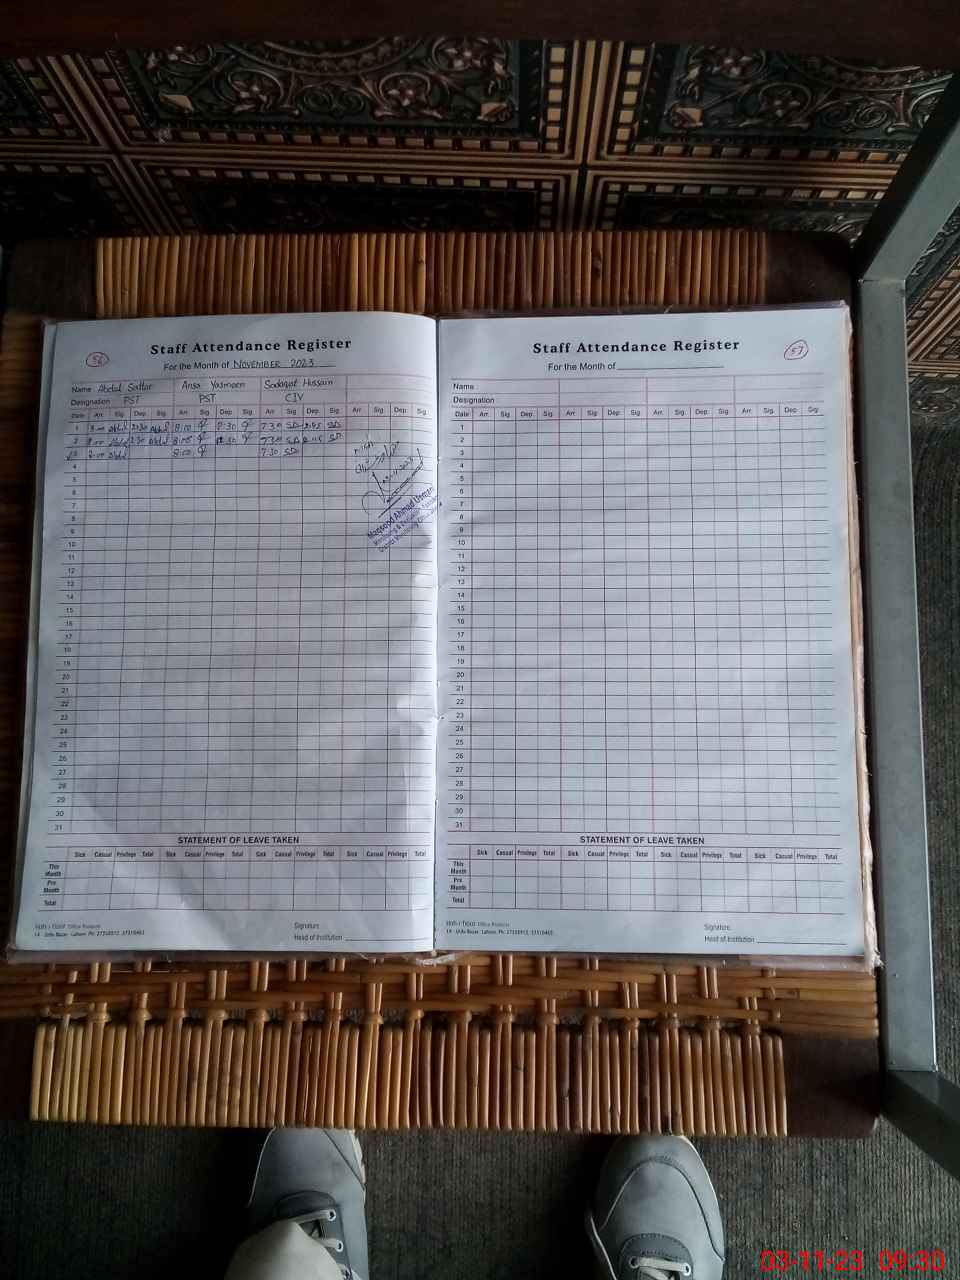 56
Staff Attendance Register
For the Month of NOVEMBER 2023
Name Abdul Sattar Ansa Yasmeen Sadaqat Hussain
Designation PST PST CIV
Date Arr. Sig. Dep. Sig. Arr. Sig. Dep. Sig. Arr. Sig. Dep. Sig. Arr. Sig. Dep. Sig.
1 8:00 Abdul 2:30 Abdul 8:00 2:30 7:30 SD 2:45 SD
2 8:00 Abdul 2:30 Abdul 8:05 2:30 7:30 SD SD
3 8:00 Abdul 8:00 7:30 SD
4
5
6
7
8
9
10
11
12
13
14
15
16
17
18
19
20
21
22
23
24
25
26
27
28
29
30
31
Maqsood Ahmad Usmani
Monitoring & Evaluation
District Monitoring Office
STATEMENT OF LEAVE TAKEN
Sick Casual Privilege Total Sick Casual Privilege Total Sick Casual Privilege Total Sick Casual Privilege Total
This Month
Pre Month
Total
Office Products
14 - Urdu Bazar, Lahore. Ph:
Signature
Head of Institution
57
Staff Attendance Register
For the Month of
Name
Designation
Date Arr. Sig. Dep. Sig. Arr. Sig. Dep. Sig. Arr. Sig. Dep. Sig. Arr. Sig. Dep. Sig.
1
2
3
4
5
6
7
8
9
10
11
12
13
14
15
16
17
18
19
20
21
22
23
24
25
26
27
28
29
30
31
STATEMENT OF LEAVE TAKEN
Sick Casual Privilege Total Sick Casual Privilege Total Sick Casual Privilege Total Sick Casual Privilege Total
This Month
Pre Month
Total
Office Products
14 - Urdu Bazar, Lahore. Ph:
Signature
Head of Institution
03-11-23 09:30